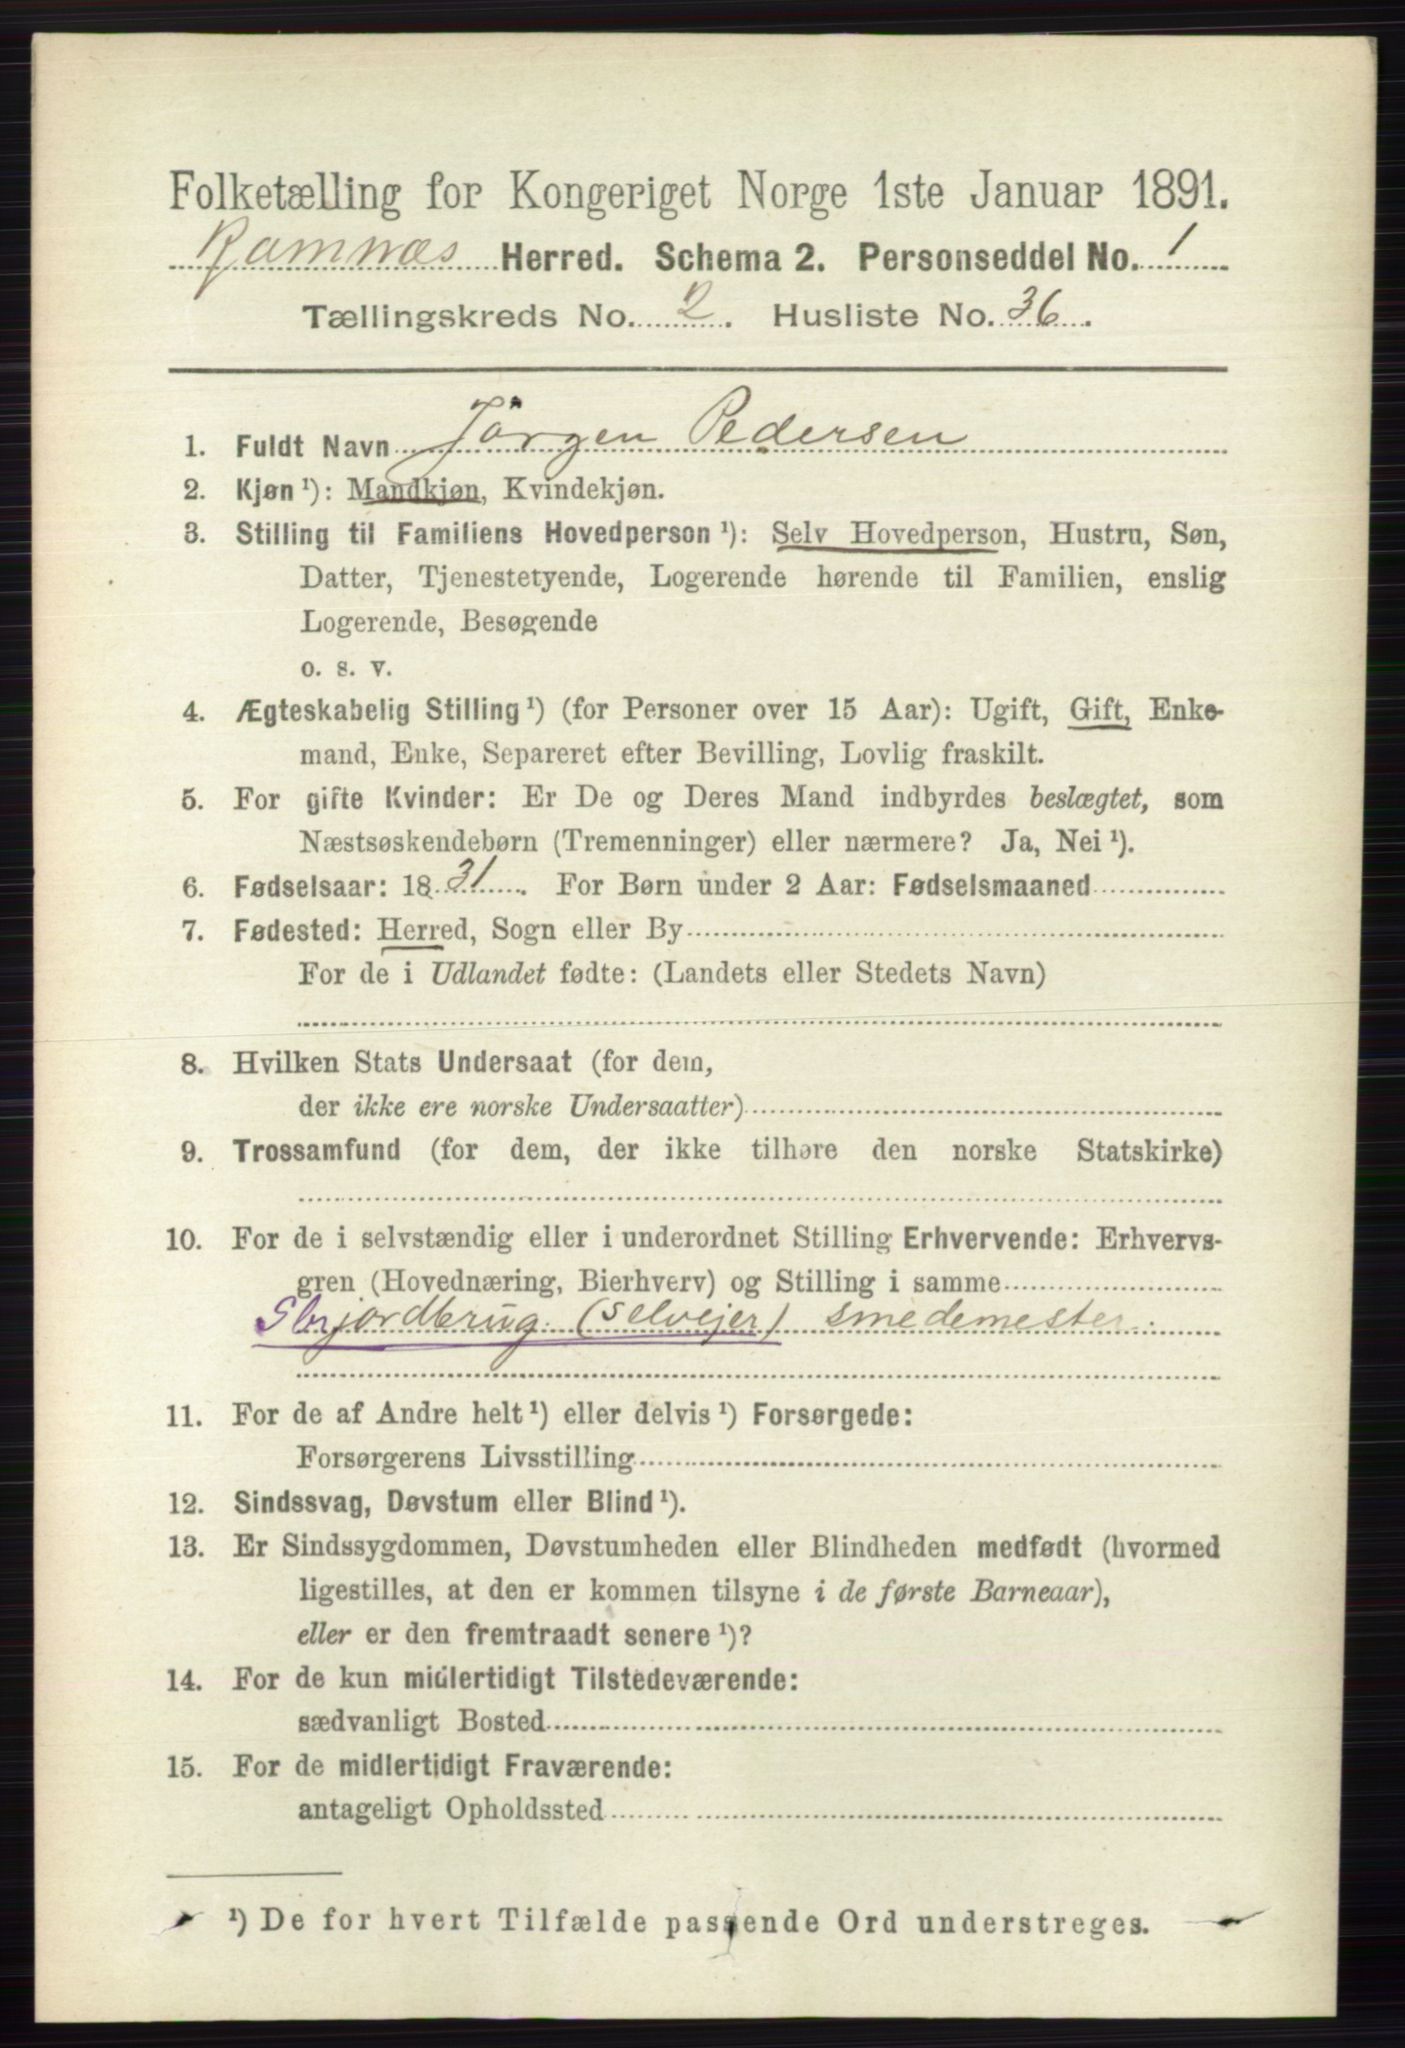 Folketælling for Kongeriget Norge 1ste Januar 1891.
Ramnæs Herred. Schema 2. Personseddel No. 1
Tællingskreds No. 2. Husliste No. 36.
1. Fuldt Navn Jörgen Pedersen
2. Kjøn ¹): Mandkjøn, Kvindekjøn.
3. Stilling til Familiens Hovedperson ¹): Selv Hovedperson, Hustru, Søn,
Datter, Tjenestetyende, Logerende hørende til Familien, enslig
Logerende, Besøgende
o. s. v.
4. Ægteskabelig Stilling ¹) (for Personer over 15 Aar): Ugift, Gift, Enke-
mand, Enke, Separeret efter Bevilling, Lovlig fraskilt.
5. For gifte Kvinder: Er De og Deres Mand indbyrdes beslægtet, som
Næstsøskendebørn (Tremenninger) eller nærmere? Ja, Nei ¹).
6. Fødselsaar: 1831. For Børn under 2 Aar: Fødselsmaaned
7. Fødested: Herred, Sogn eller By
For de i Udlandet fødte: (Landets eller Stedets Navn)
8. Hvilken Stats Undersaat (for dem,
der ikke ere norske Undersaatter)
9. Trossamfund (for dem, der ikke tilhøre den norske Statskirke)
10. For de i selvstændig eller i underordnet Stilling Erhvervende: Erhvervs-
gren (Hovednæring, Bierhverv) og Stilling i samme
Slvjordbrug (selvejer) smedemester
11. For de af Andre helt ¹) eller delvis ¹) Forsørgede:
Forsørgerens Livsstilling
12. Sindssvag, Døvstum eller Blind ¹).
13. Er Sindssygdommen, Døvstumheden eller Blindheden medfødt (hvormed
ligestilles, at den er kommen tilsyne i de første Barneaar),
eller er den fremtraadt senere ¹)?
14. For de kun midlertidigt Tilstedeværende:
sædvanligt Bosted
15. For de midlertidigt Fraværende:
antageligt Opholdssted
¹) De for hvert Tilfælde passende Ord understreges.